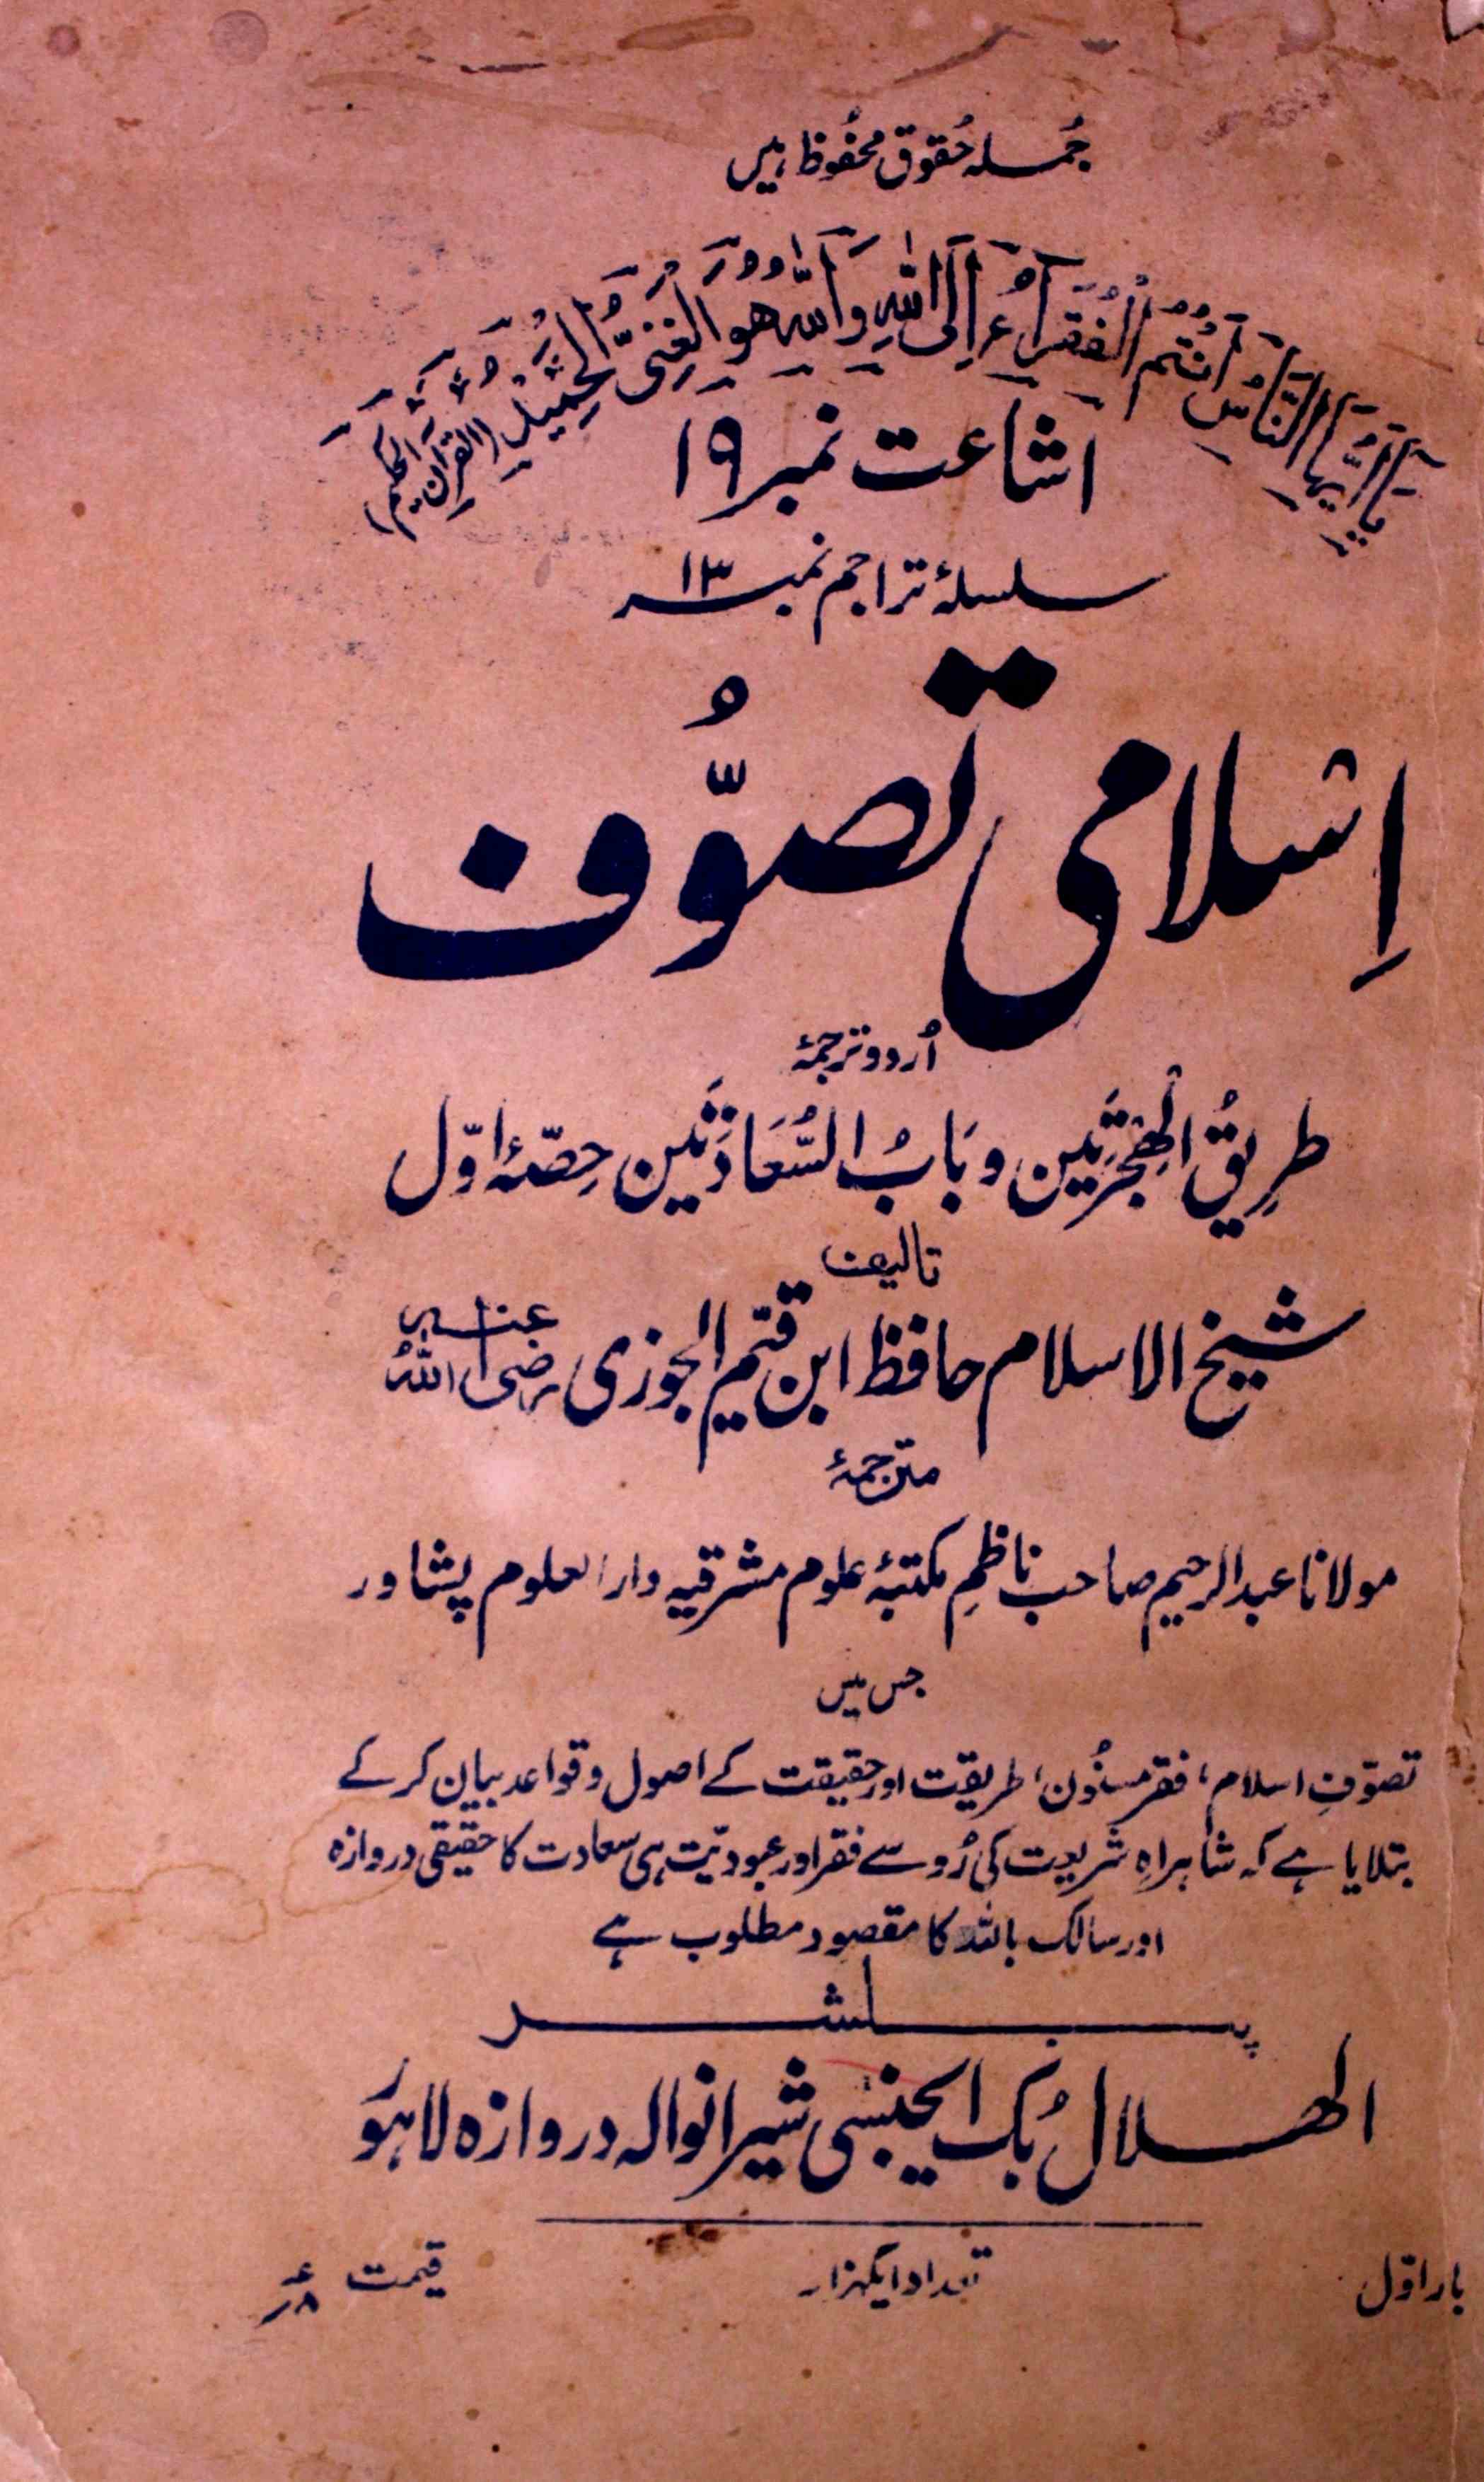 جُملہ حُقوق محفُوظ ہیں
یَا اَیُّہَا النَّاسُ اَنْتُمُ الْفُقَرَآءُ اِلَی اللّٰہِ وَاللّٰہُ ھُوَ الْغَنِیُّ الْحَمِیْدُ (القرآن الحکیم)
اشاعت نمبر ۱۹
سلسلۂ تراجم نمبر ۱۳
اِسلامی تصوُّف
اُردو ترجمۂ
طرِیقُ الْھِجْرَتَیْن وبَابُ السُّعَادَتَیْن حِصّۂ اوّل
تالیف
شیخ الاسلام حافظ ابن قیّم الجوزی رضی اللّٰہُ عنہ
مترجمۂ
مولانا عبدالرحیم صاحب ناظمِ مکتبۂ علوم مشرقیہ دارالعلوم پشاور
جس میں
تصوّفِ اسلام، فقر مسنُون، طریقت اور حقیقت کے اصول و قواعد بیان کر کے
بتلایا ہے کہ شاہراہِ شریعت کی رُو سے فقر اور عبودیّت ہی سعادت کا حقیقی دروازہ
اور سالک باللہ کا مقصود مطلوب ہے
پبلشر
الھلال بُک ایجنسی شیرانوالہ دروازہ لاہور
بار اوّل
تعداد ایکہزار
قیمت